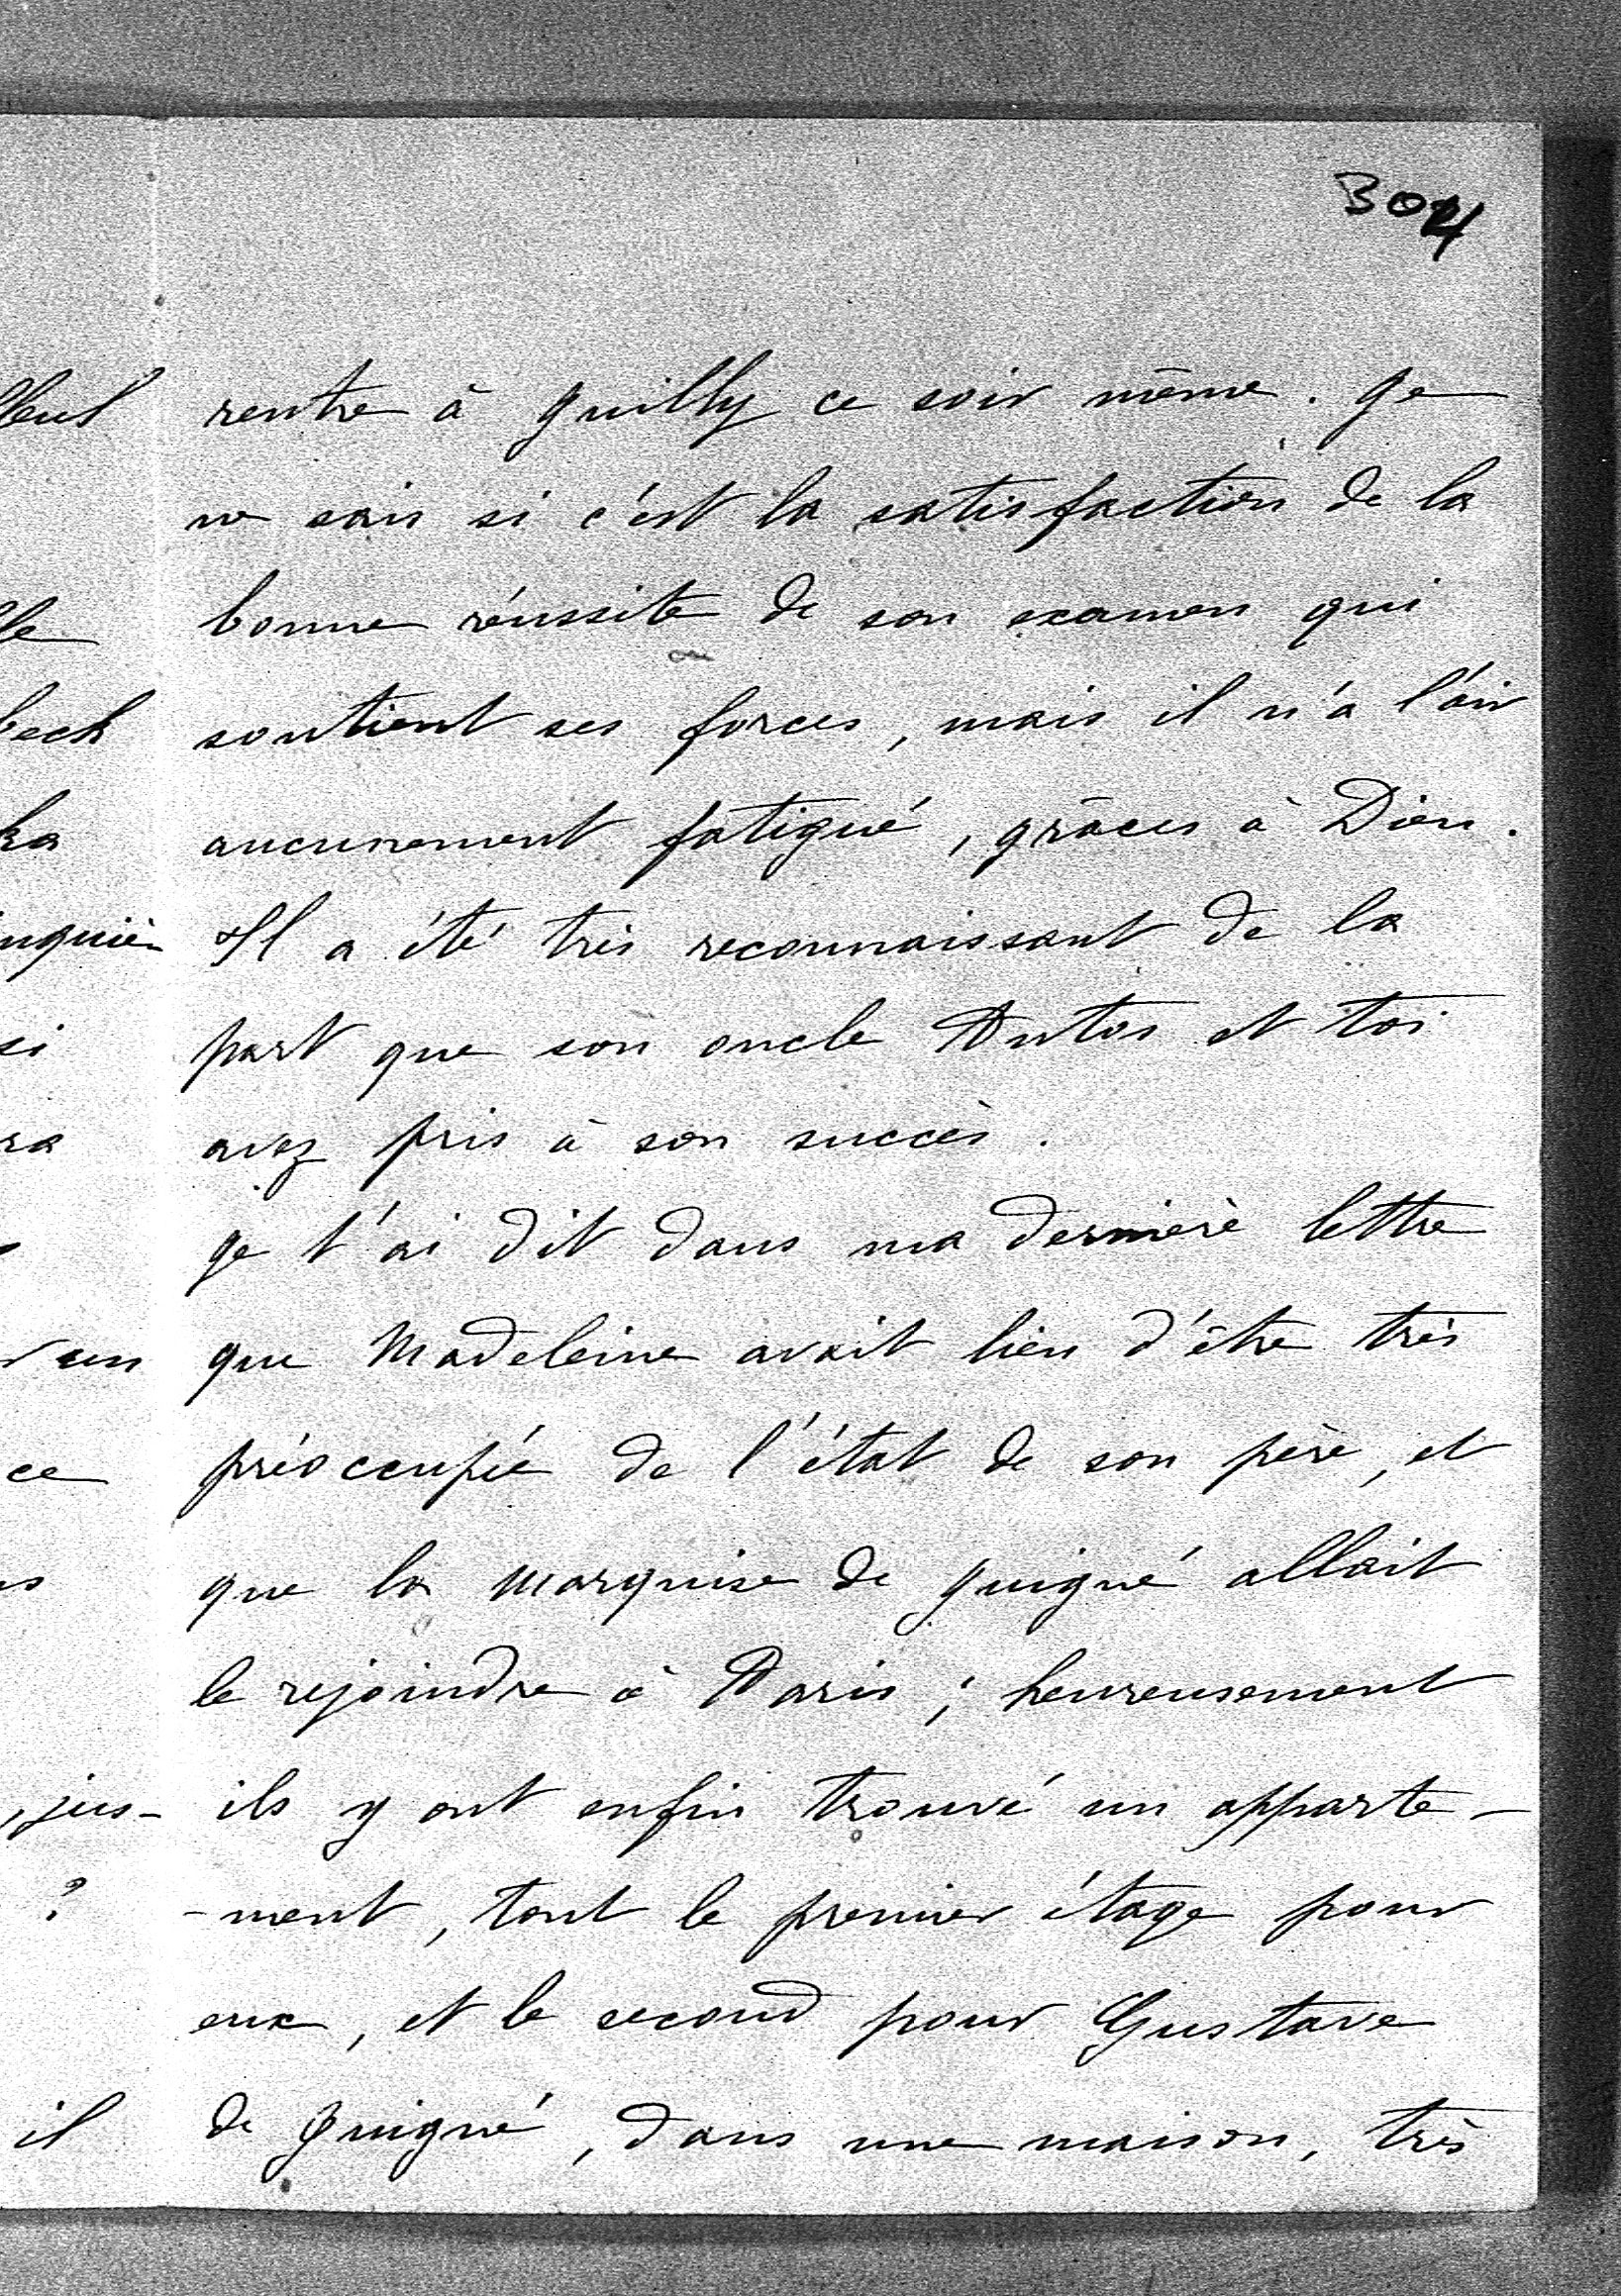 304
rentre à Juilly ce soir même. Je
ne sais si c'est la satisfaction de la
bonne réussite de son examen qui
soutient ses forces, mais il n'a l'air
aucunement fatigué, grâces à Dieu.
Il a été très reconnaissant de la
part que son oncle Antos et toi
avez pris à son succès.
Je t'ai dit dans ma dernière lettre
que Madeleine avait lieu d'être très
préoccupée de l'état de son père, et
que la Marquise de Guigné allait
le rejoindre à Paris ; heureusement
ils y ont enfin trouvé un apparte-
-ment, tout le premier étage pour
eux, et le second pour Gustave
de Guigné, dans une maison, très